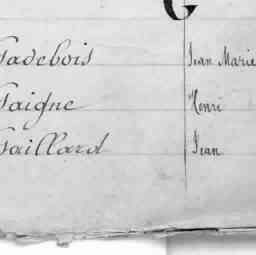 G
Gadebois Jean Marie
Gaigne Henri
Gaillard Jean